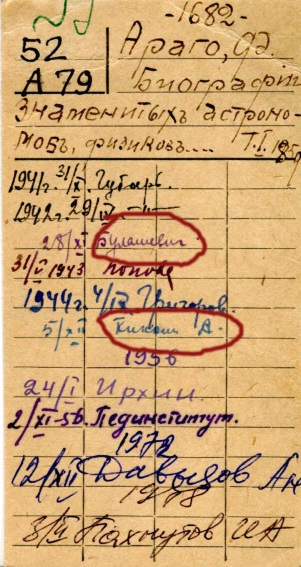 -1682-
52
А 79
Араго, Фд.
Биографіи
знаменитыхъ астроно-
мовъ, физиковъ.... Т. I.
1941г. 31/X. Губарь.
1942г. 29/IV —"—
28/XI Булашевич
31/V 1943 Попова
1944г. 4/IX Григоров.
5/XII Кикоин
1956
24/I Ирхин.
2/XI-56. Пединститут.
1972
12/XII Давыдов
1978
3/VI Пахнутов И А